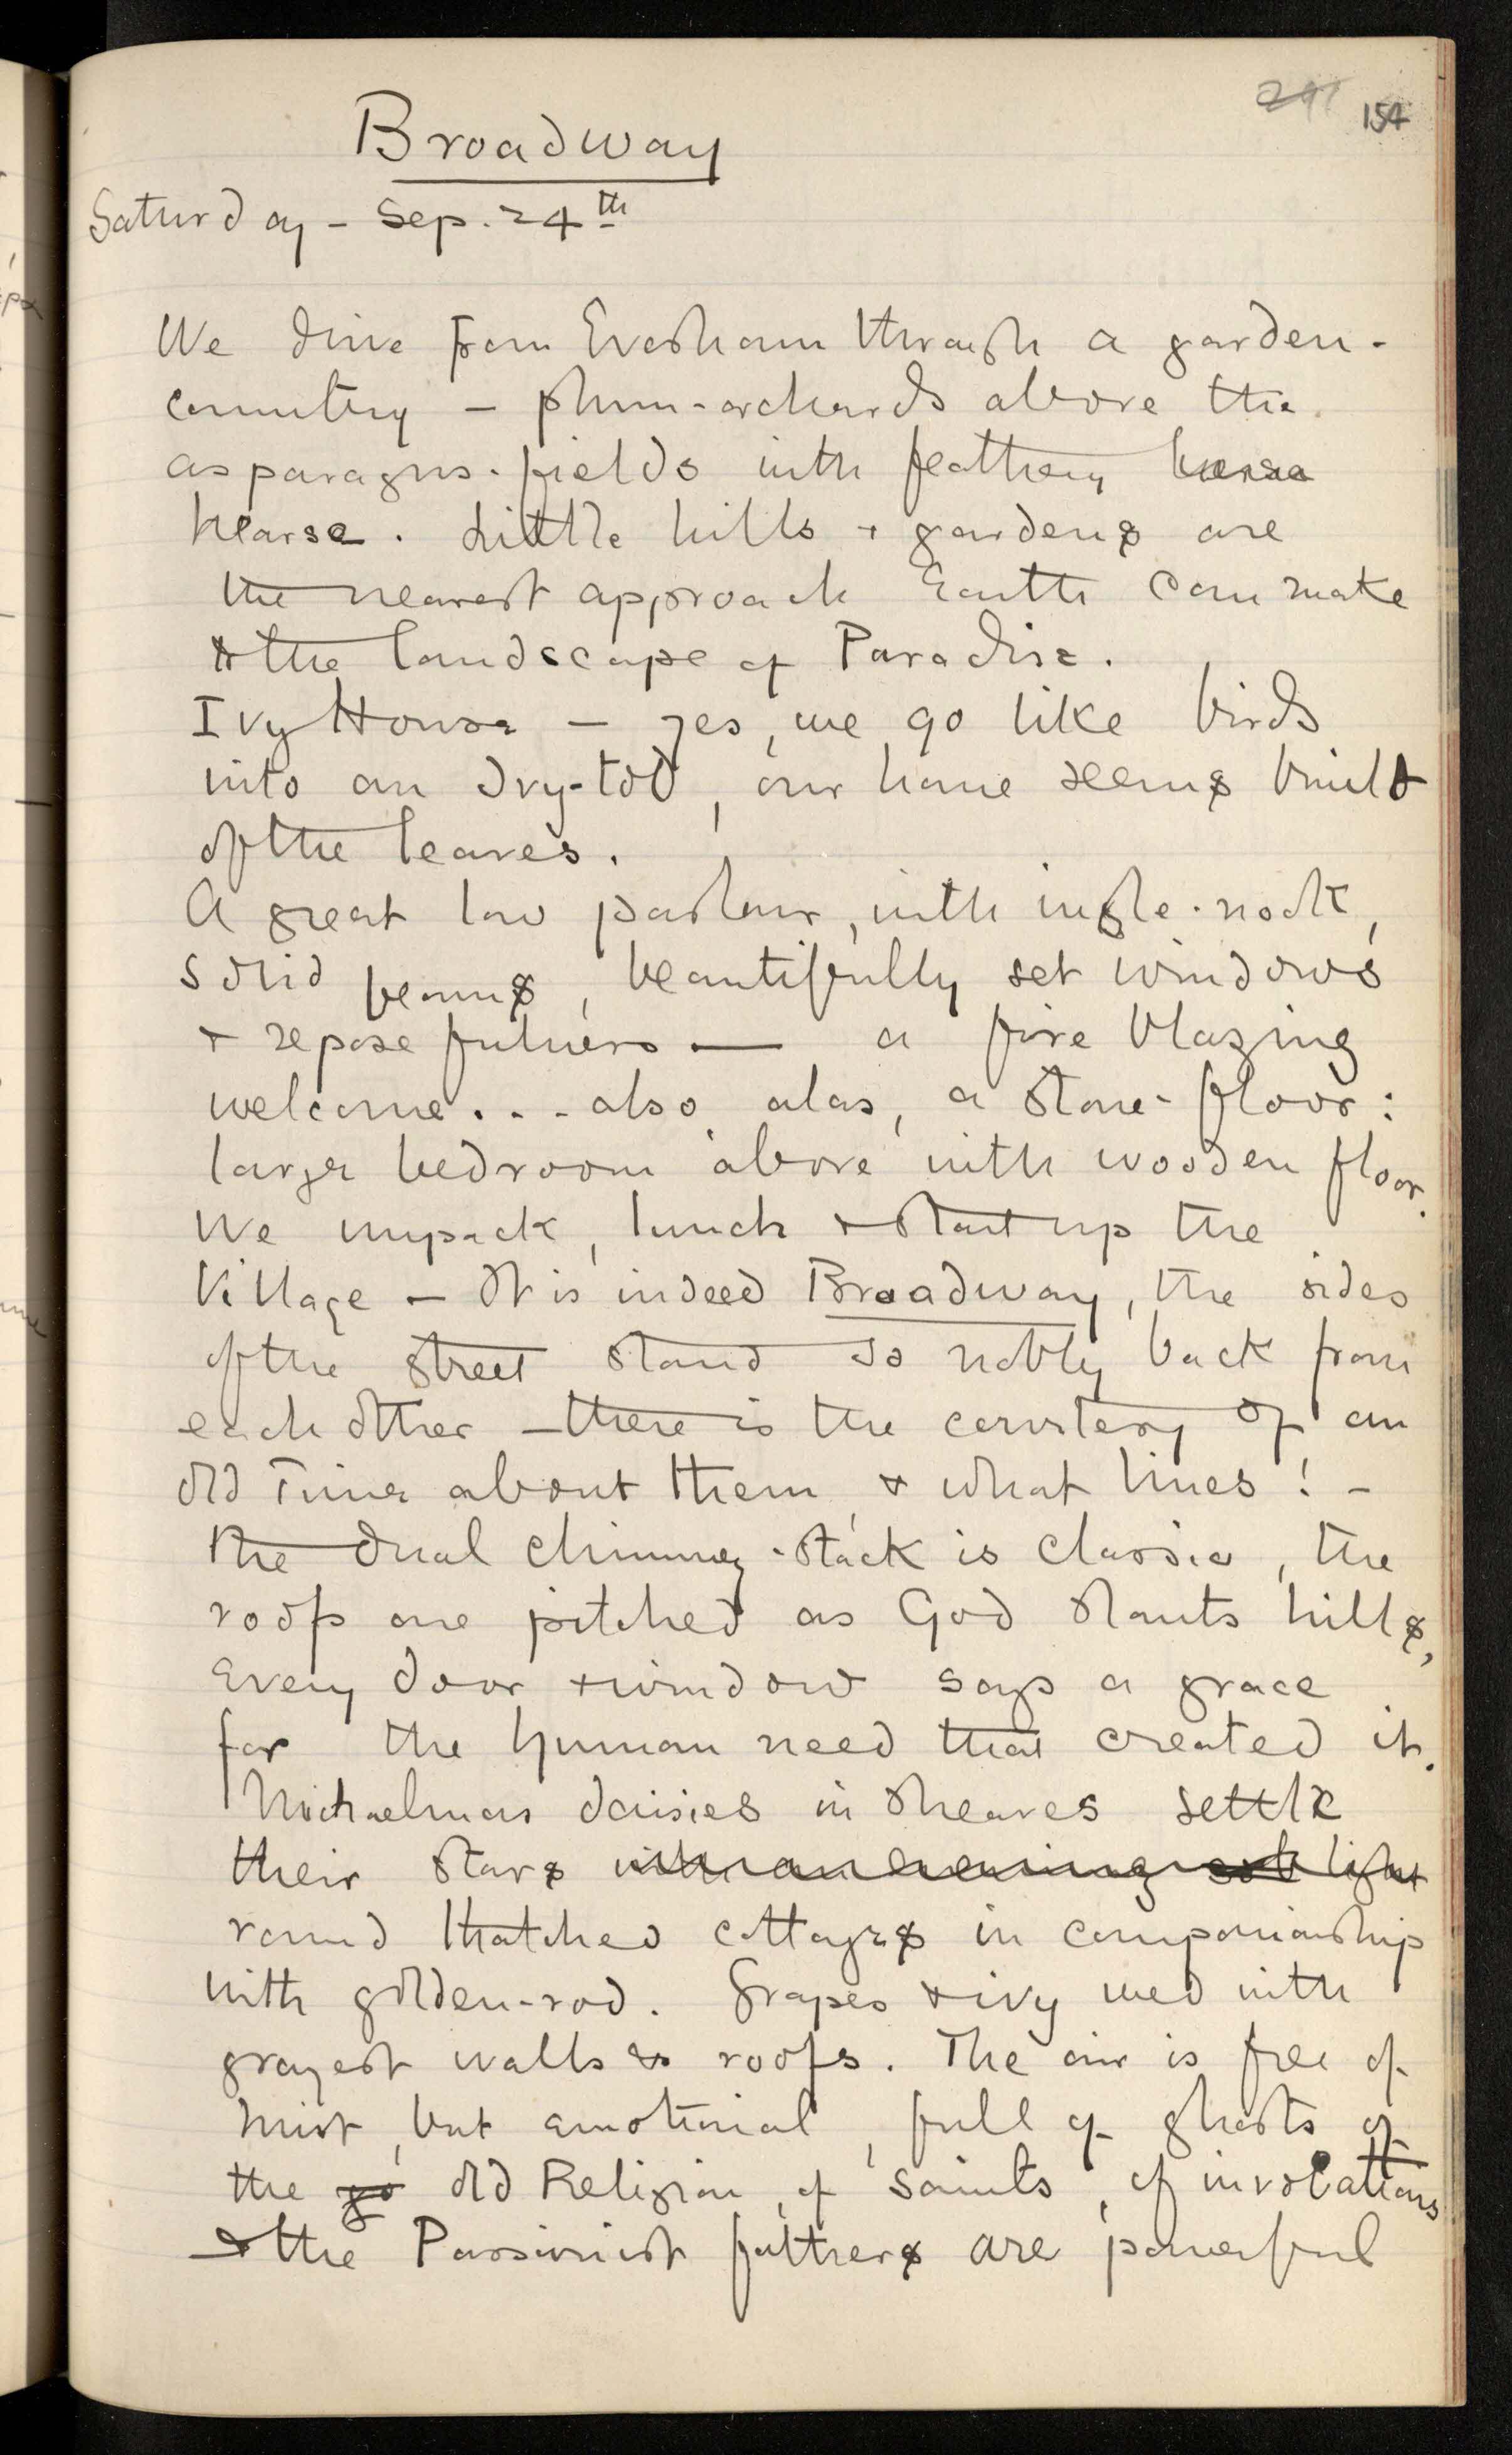 241 154
Broadway
Saturday - Sep. 24th
We drive from Evesham through a garden-
country - plum-orchards above the
asparagus-fields with feathery
hearse. Little hills & gardens are
the nearest approach Earth can make
to the landscape of Paradise.
Ivy House - yes, we go like birds
into an Ivy-tod, our home seems built
of the leaves.
A great low parlour, with ingle-nook,
solid beams, beautifully set windows
& reposefulness — a fire blazing
welcome... also, alas, a stone-floor:
large bedroom above with wooden floor.
We unpack, lunch & start up the
Village - It is indeed Broadway, the sides
of the street stand so nobly back from
each other - there is the courtesy of an
old Time about them, & what lines! -
the dual chimney-stack is classic, the
roofs are pitched as God slants hills,
every door & window says a grace
for the human need that created it.
Michaelmas daisies in sheaves settle
their stars with an evening light
round thatched cottages in companionship
with golden-rod. Grapes & ivy wed with
grayest walls & roofs. The air is free of
mist, but emotional, full of ghosts of
the go old Religion, of saints, of invocations
& the Passionist fathers are powerful